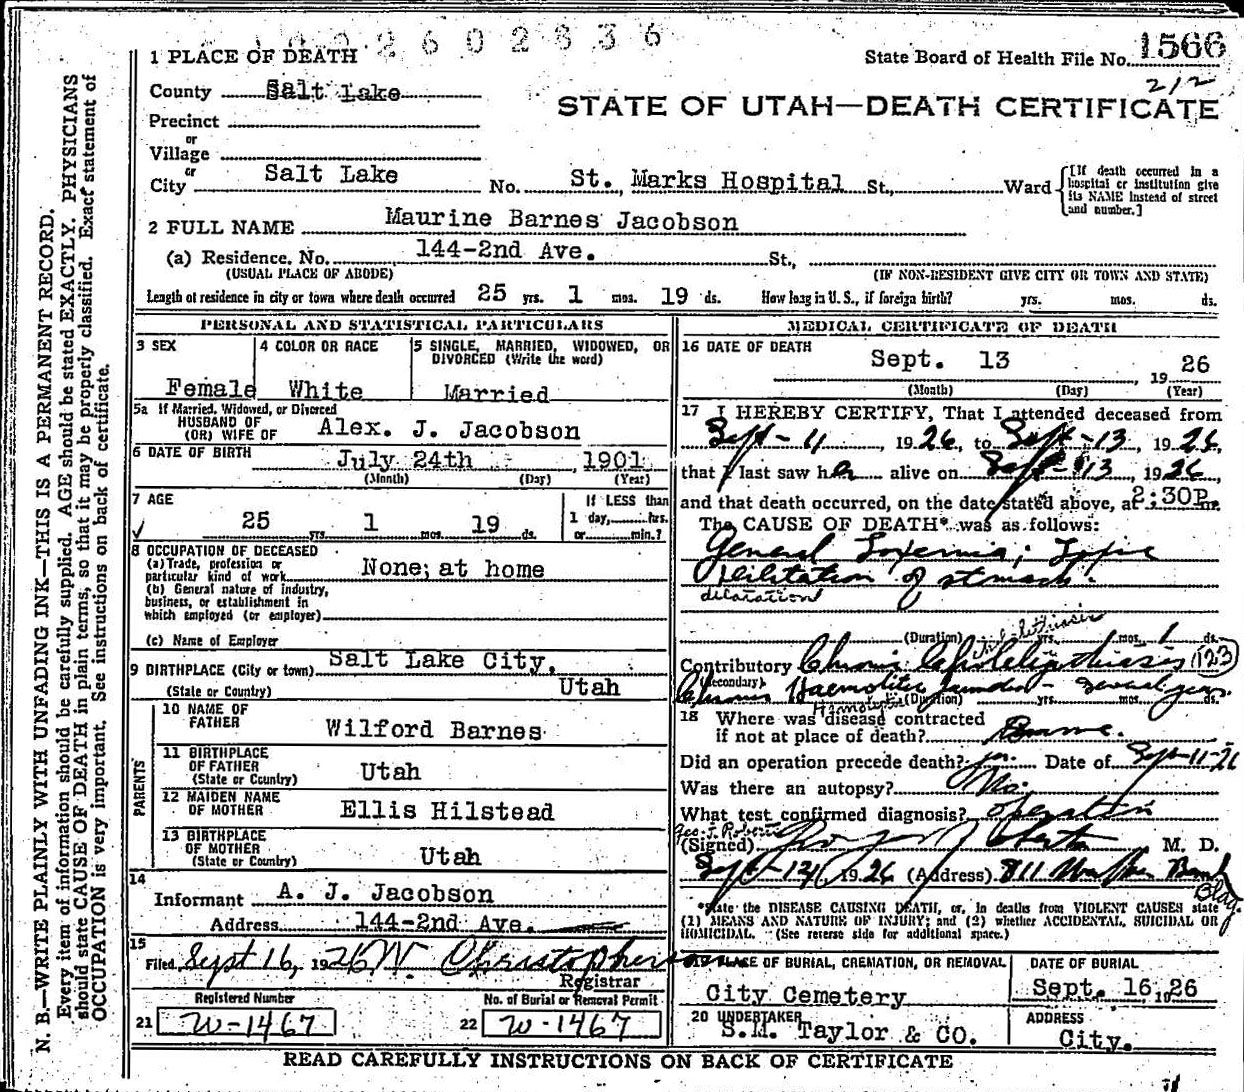 1922602836
1 PLACE OF DEATH
State Board of Health File No. 1566
212
County Salt Lake
STATE OF UTAH—DEATH CERTIFICATE
Precinct
or
Village
or
City Salt Lake No. St. Marks Hospital St., Ward
[If death occurred in a hospital or institution give its NAME instead of street and number.]
2 FULL NAME Maurine Barnes Jacobson
(a) Residence. No. 144-2nd Ave. St.,
(USUAL PLACE OF ABODE) (IF NON-RESIDENT GIVE CITY OR TOWN AND STATE)
Length of residence in city or town where death occurred 25 yrs. 1 mos. 19 ds. How long in U. S., if foreign birth? yrs. mos. ds.
PERSONAL AND STATISTICAL PARTICULARS
3 SEX
Female
4 COLOR OR RACE
White
5 SINGLE, MARRIED, WIDOWED, OR DIVORCED (Write the word)
Married
5a If Married, Widowed, or Divorced
HUSBAND OF
(OR) WIFE OF Alex. J. Jacobson
6 DATE OF BIRTH July 24th, 1901
(Month) (Day) (Year)
7 AGE
25 yrs. 1 mos. 19 ds.
If LESS than
1 day, hrs.
or min.?
8 OCCUPATION OF DECEASED
(a) Trade, profession or
particular kind of work None; at home
(b) General nature of industry,
business, or establishment in
which employed (or employer)
(c) Name of Employer
9 BIRTHPLACE (City or town) Salt Lake City,
(State or Country) Utah
PARENTS
10 NAME OF
FATHER Wilford Barnes
11 BIRTHPLACE
OF FATHER
(State or Country) Utah
12 MAIDEN NAME
OF MOTHER Ellis Hilstead
13 BIRTHPLACE
OF MOTHER
(State or Country) Utah
14
Informant A. J. Jacobson
Address 144-2nd Ave.
15
Filed Sept 16, 1926 W. Christopherson
Registrar
Registered Number
21 W-1467
No. of Burial or Removal Permit
22 W-1467
MEDICAL CERTIFICATE OF DEATH
16 DATE OF DEATH
Sept. 13, 1926
(Month) (Day) (Year)
17 I HEREBY CERTIFY, That I attended deceased from
Sept-11, 1926, to Sept-13, 1926,
that I last saw her alive on Sept-13, 1926,
and that death occurred, on the date stated above, at 2:30P m.
The CAUSE OF DEATH* was as follows:
General Toxemia;
of stomach.
dilatation
(Duration) yrs. mos. 1 ds.
Contributory Chronic 123
(Secondary)
Chronic Haemolitic Jaundice - several yrs.
Hemolytic
(Duration) yrs. mos. ds.
18 Where was disease contracted
if not at place of death?
Did an operation precede death? yes. Date of Sept-11-26
Was there an autopsy? No.
What test confirmed diagnosis? operation
Geo. J. Roberts
(Signed) M. D.
Sept-14, 1926 (Address) 811 Bank
Bldg.
*State the DISEASE CAUSING DEATH, or, in deaths from VIOLENT CAUSES state
(1) MEANS AND NATURE OF INJURY; and (2) whether ACCIDENTAL, SUICIDAL OR
HOMICIDAL. (See reverse side for additional space.)
19 PLACE OF BURIAL, CREMATION, OR REMOVAL
City Cemetery
DATE OF BURIAL
Sept. 16, 1926
20 UNDERTAKER
S.M. Taylor & CO.
ADDRESS
City.
READ CAREFULLY INSTRUCTIONS ON BACK OF CERTIFICATE
N. B.—WRITE PLAINLY WITH UNFADING INK—THIS IS A PERMANENT RECORD.
Every item of information should be carefully supplied. AGE should be stated EXACTLY. PHYSICIANS
should state CAUSE OF DEATH in plain terms, so that it may be properly classified. Exact statement of
OCCUPATION is very important. See instructions on back of certificate.